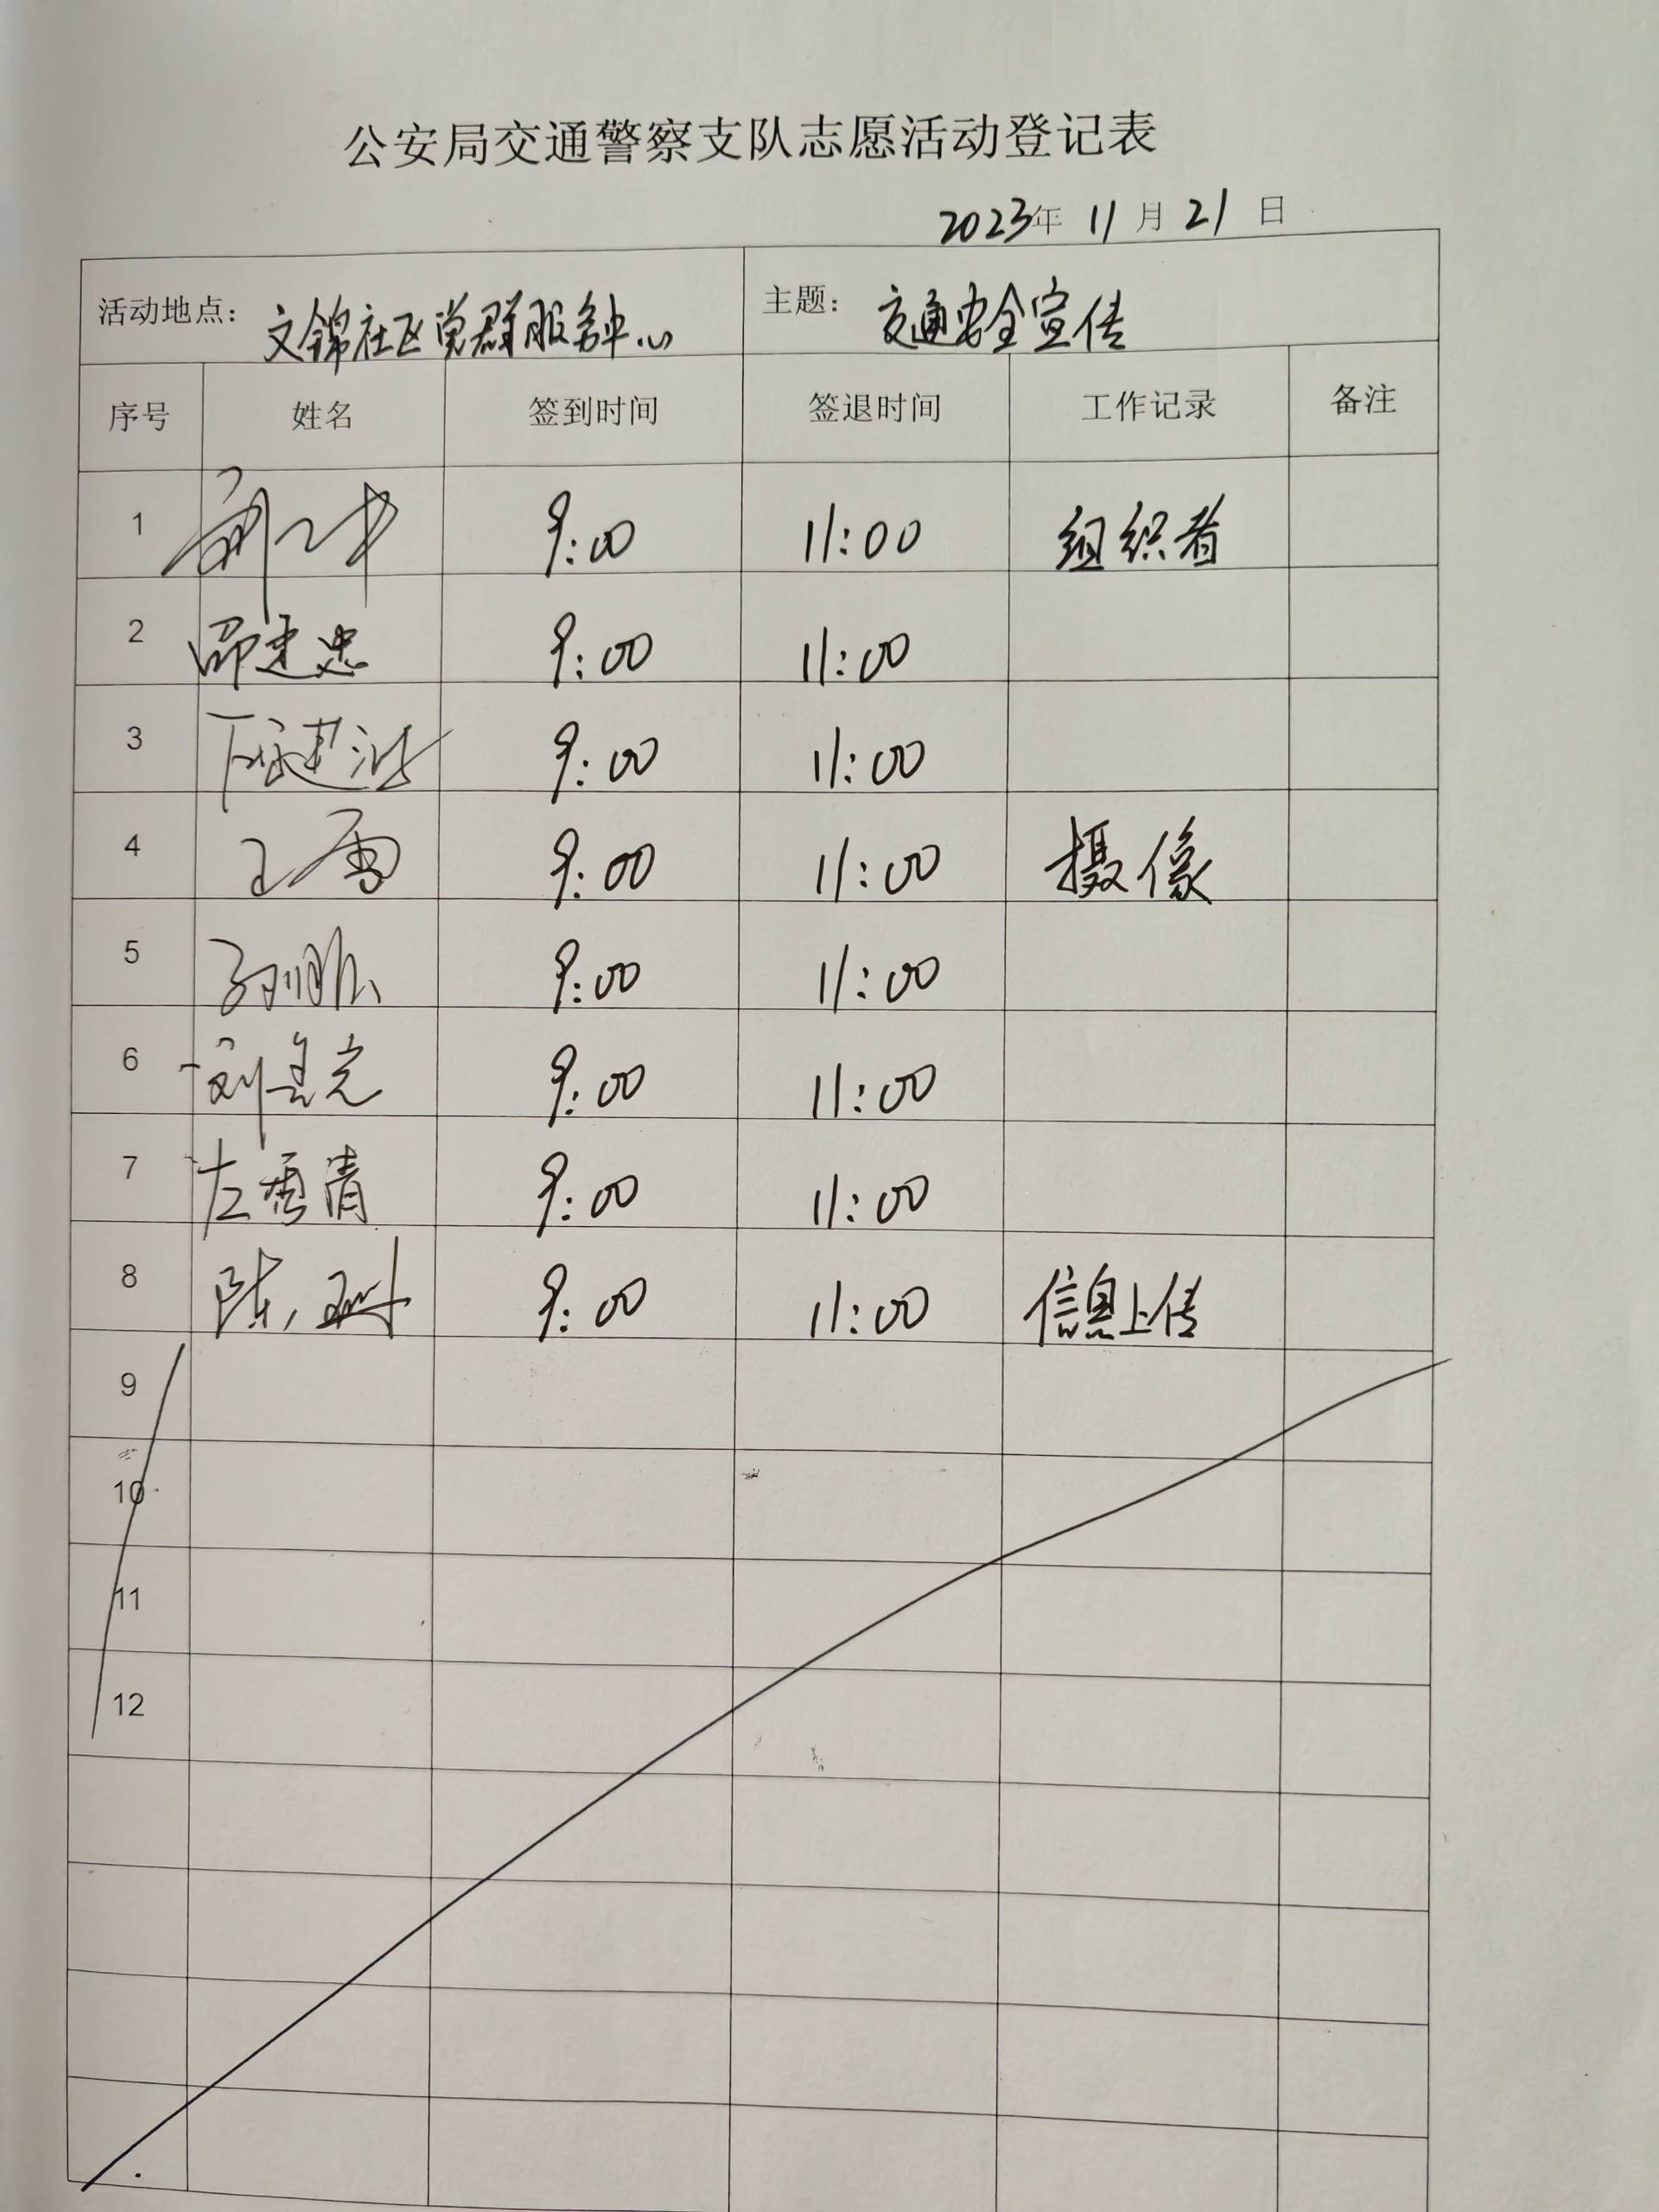 公安局交通警察支队志愿活动登记表
2023年 11月 21日
活动地点：文锦社区党群服务中心 主题：交通安全宣传
序号 姓名 签到时间 签退时间 工作记录 备注
1 9:00 11:00 组织者
2 邵建忠 9:00 11:00
3 9:00 11:00
4 王雷 9:00 11:00 摄像
5 9:00 11:00
6 9:00 11:00
7 左秀清 9:00 11:00
8 陈 9:00 11:00 信息上传
9
10
11
12